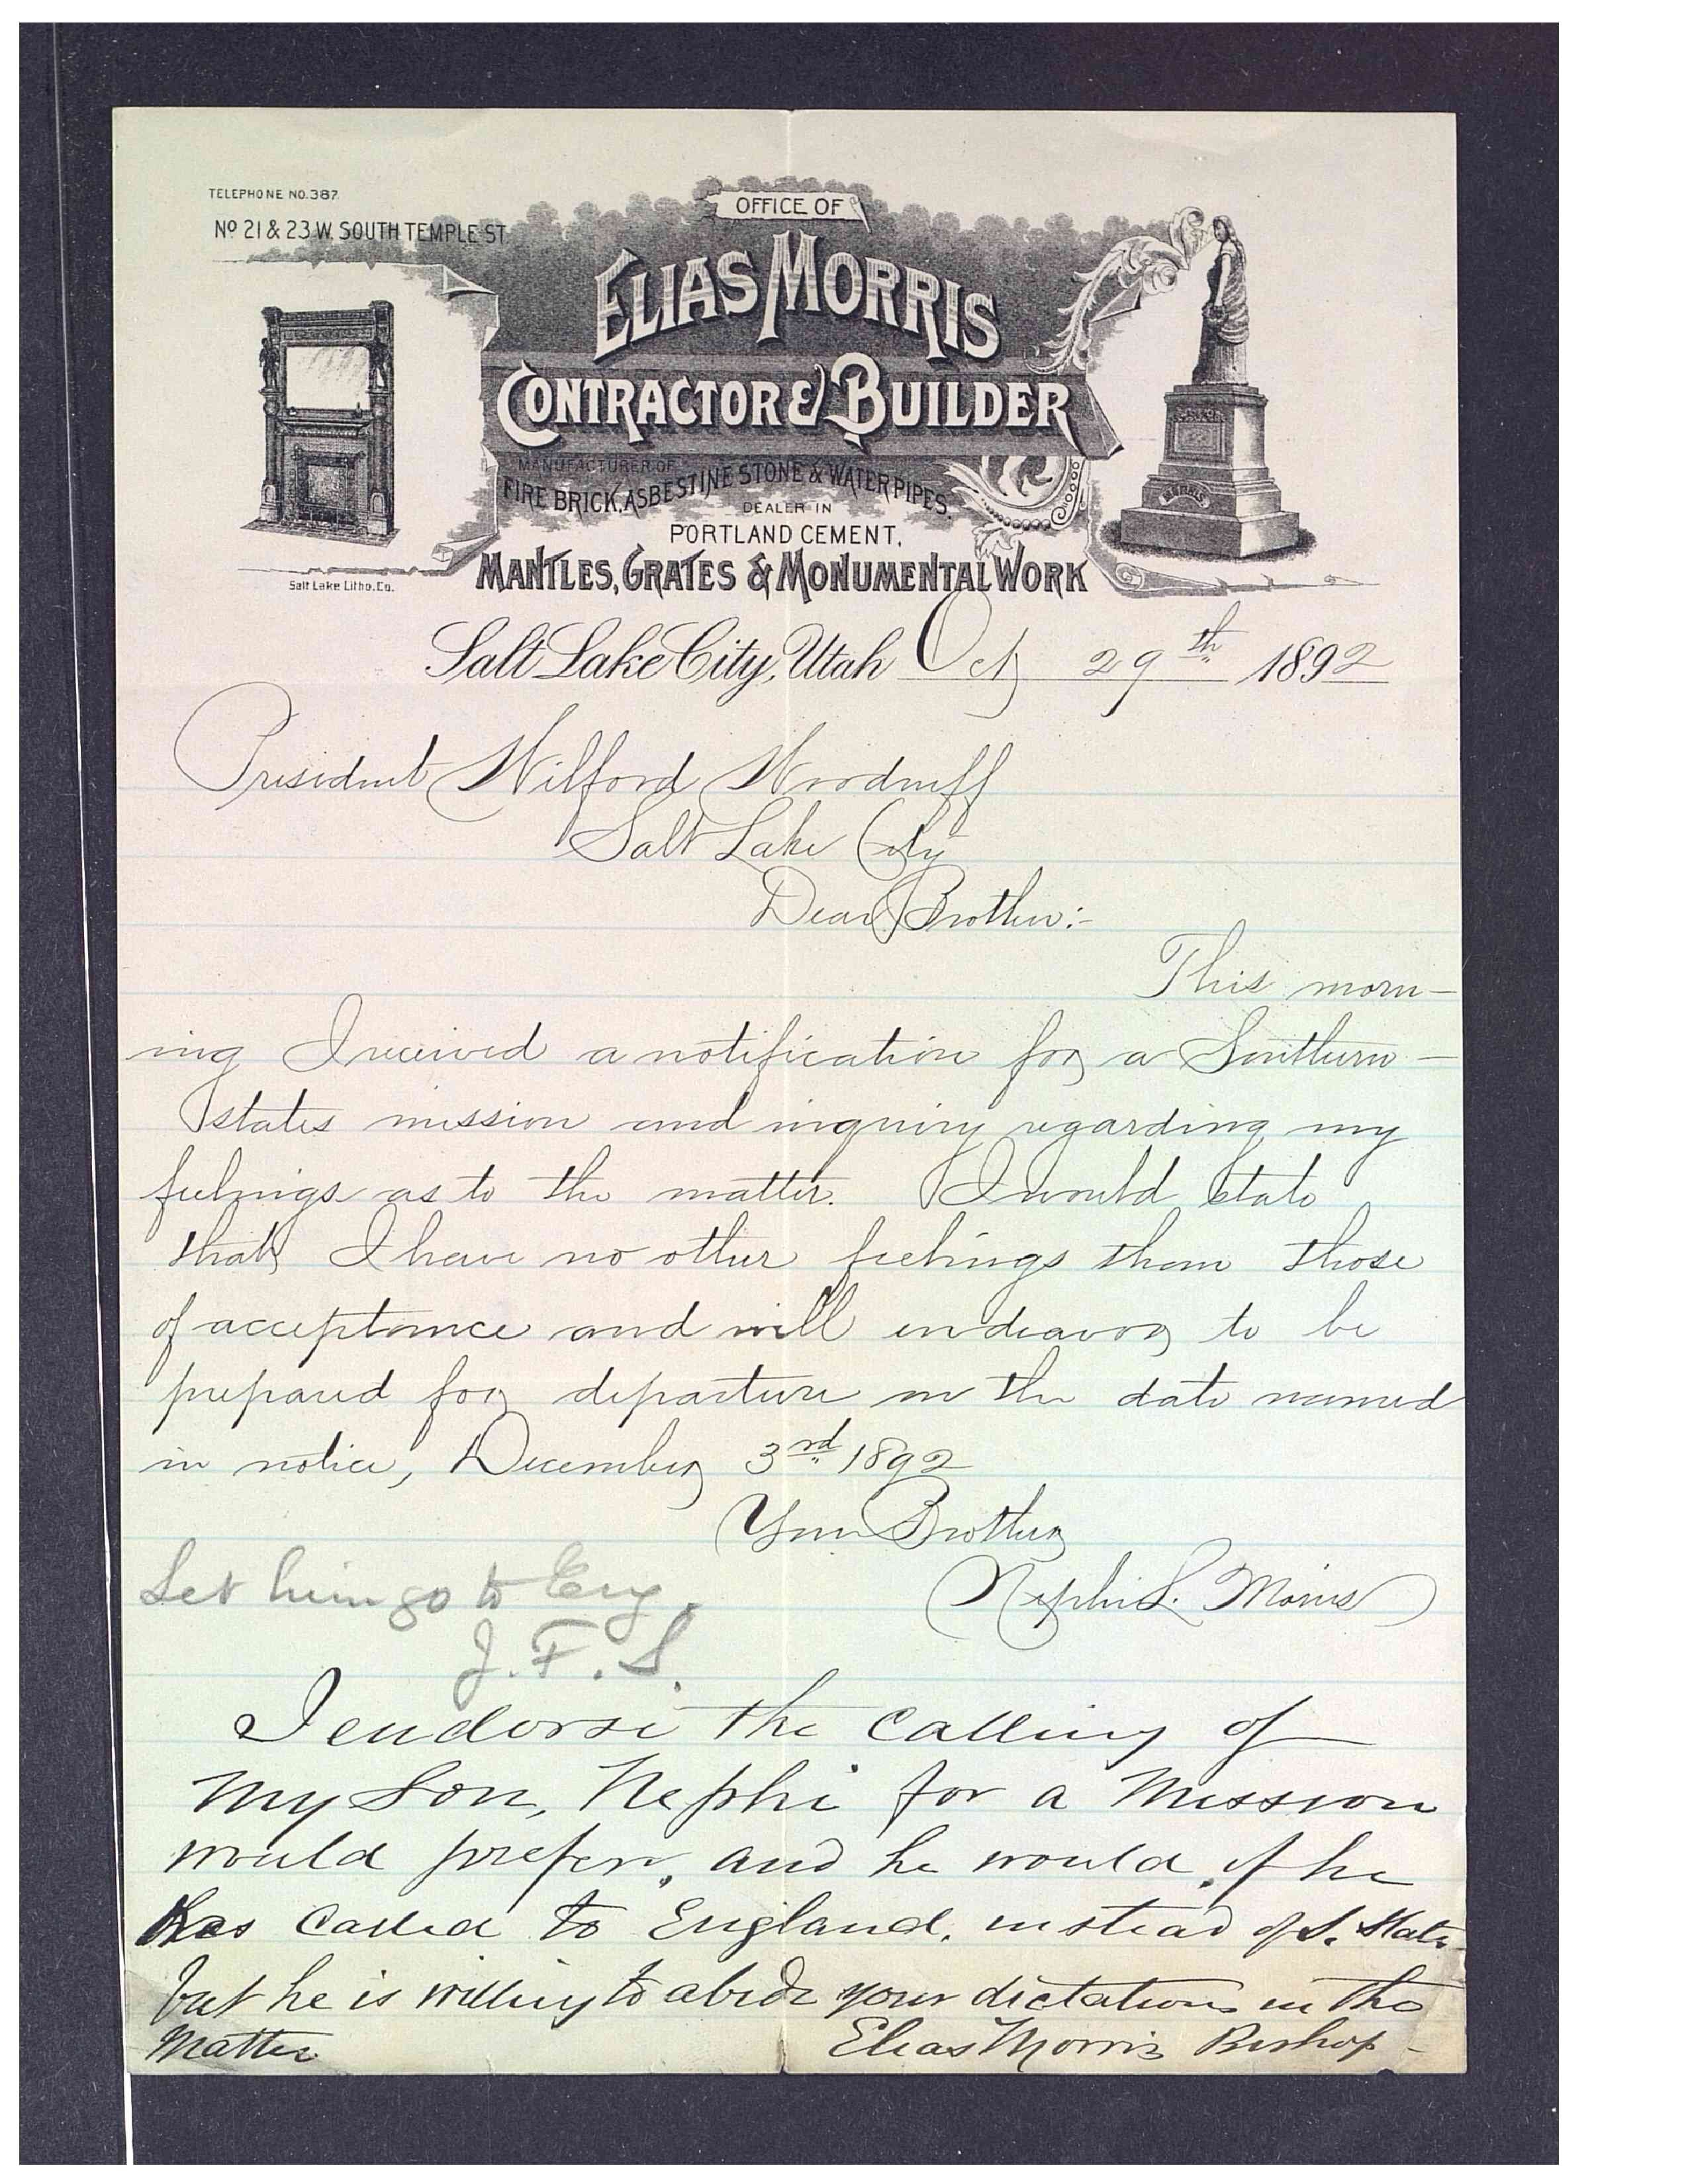 TELEPHONE NO. 387.
No 21 & 23 W. SOUTH TEMPLE ST.
OFFICE OF
ELIAS MORRIS
CONTRACTOR & BUILDER
MANUFACTURER OF
FIRE BRICK, ASBESTINE STONE & WATER PIPES.
DEALER IN
PORTLAND CEMENT,
MANTLES, GRATES & MONUMENTAL WORK
MORRIS
Salt Lake Litho. Co.
Salt Lake City, Utah Oct 29th 1892
President Wilford Woodruff
Salt Lake City
Dear Brother:-
This morn-
ing I received a notification for a Southern-
states mission and inquiry regarding my
feelings as to the matter. I would state
that I have no other feelings than those
of acceptance and will endeavor to be
prepared for departure on the date named
in notice, December 3rd 1892
Your Brother
Nephi L. Morris
Let him go to Eng.
J. F. S.
I endorse the calling of
My Son, Nephi for a Mission
would prefer, and he would, if he
was called to England, instead of S. State
but he is willing to abide your dictations in the
Matter
Elias Morris Bishop-